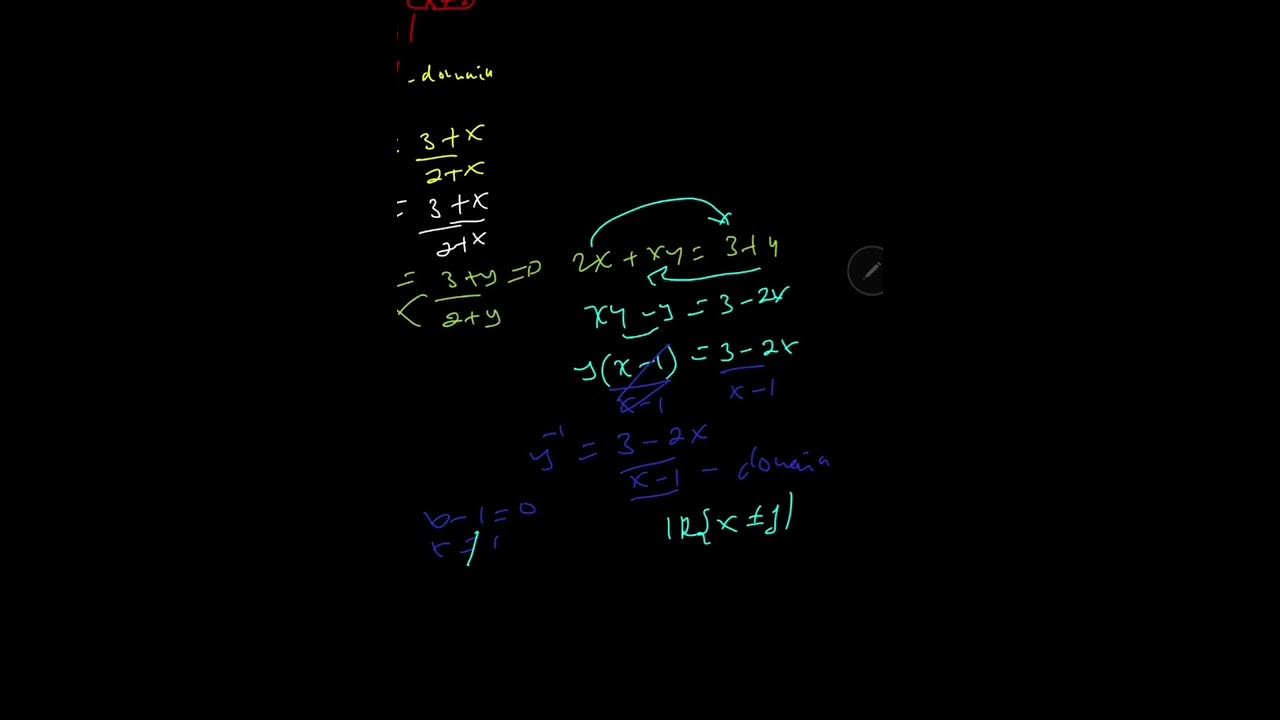 - domain
= 3+x
2+x
= 3+x
2+x
= 3+y =0
2+y
2x + xy = 3+y
xy - y = 3-2x
y(x-1) = 3-2x
x-1 x-1
y^-1 = 3-2x
x-1 - domain
-1=0
x≠1
IR{x≠1}